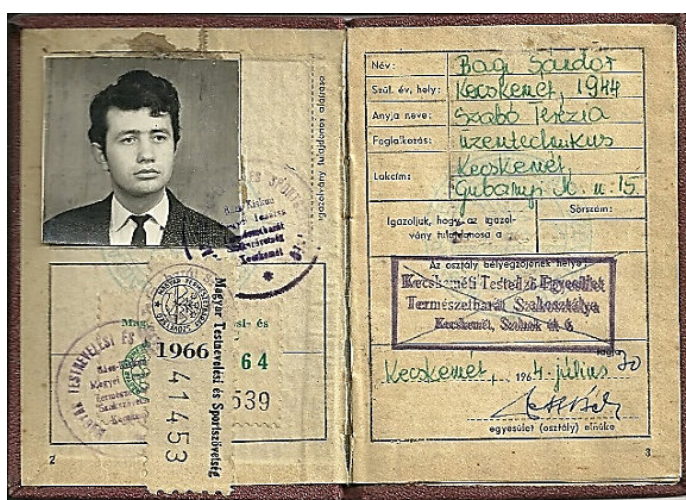 igazolvány tulajdonos aláírása
1966
41453
Magyar Testnevelési és Sportszövetség
64
539
2
Név: Bagi Sándor
Szül. év, hely: Kecskemét, 1944
Anyja neve: Szabó Terézia
Foglalkozás: üzemtechnikus
Lakcím: Kecskemét,
u. 15.
Sorszám:
Igazoljuk, hogy az igazol-
vány tulajdonosa a
Az osztály bélyegzőjének helye:
Kecskeméti Testedző Egyesület
Természetbarát Szakosztálya
Kecskemét,
tagja
Kecskemét, 1964. július 30
egyesület (osztály) elnöke
3